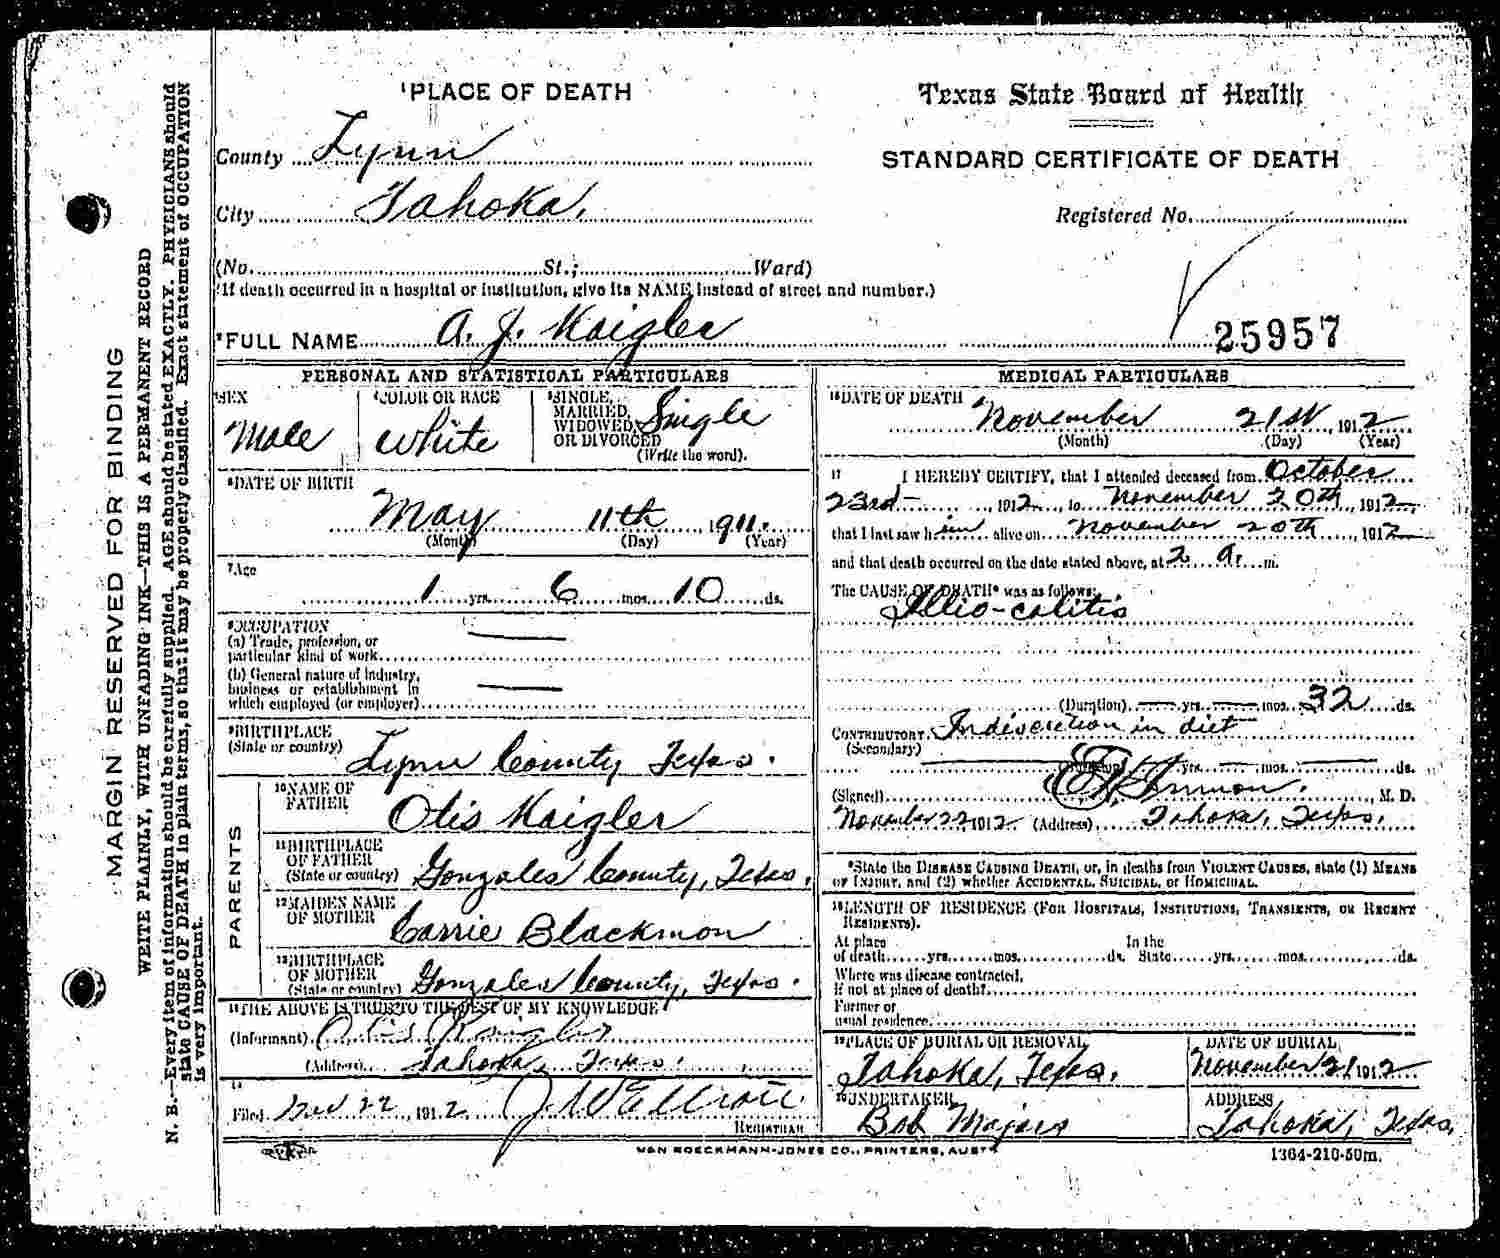 MARGIN RESERVED FOR BINDING
WRITE PLAINLY, WITH UNFADING INK—THIS IS A PERMANENT RECORD
N. B.—Every item of information should be carefully supplied. AGE should be stated EXACTLY. PHYSICIANS should
state CAUSE OF DEATH in plain terms, so that it may be properly classified. Exact statement of OCCUPATION
is very important.
¹PLACE OF DEATH
County Lynn
City Tahoka.
(No. St.; Ward)
(If death occurred in a hospital or institution, give its NAME instead of street and number.)
Texas State Board of Health
STANDARD CERTIFICATE OF DEATH
Registered No.
25957
²FULL NAME A. J. Kaigler
PERSONAL AND STATISTICAL PARTICULARS
³SEX
Male
⁴COLOR OR RACE
White
⁵SINGLE, MARRIED, WIDOWED, OR DIVORCED Single
(Write the word).
⁶DATE OF BIRTH
May 11th 1911.
(Month) (Day) (Year)
⁷Age
1 yrs. 6 mos. 10 ds.
⁸OCCUPATION
(a) Trade, profession, or
particular kind of work
(b) General nature of industry,
business or establishment in
which employed (or employer)
⁹BIRTHPLACE
(State or country) Lynn County Texas.
PARENTS
¹⁰NAME OF
FATHER Otis Kaigler
¹¹BIRTHPLACE
OF FATHER
(State or country) Gonzales County, Texas.
¹²MAIDEN NAME
OF MOTHER Carrie Blackmon
¹³BIRTHPLACE
OF MOTHER
(State or country) Gonzales County, Texas.
¹⁴THE ABOVE IS TRUE TO THE BEST OF MY KNOWLEDGE
(Informant) Otis Kaigler
(Address) Tahoka, Texas.
15
Filed 22, 1912
REGISTRAR
MEDICAL PARTICULARS
¹⁶DATE OF DEATH November 21st, 1912
(Month) (Day) (Year)
17 I HEREBY CERTIFY, that I attended deceased from October
23rd, 1912, to November 20th, 1912
that I last saw him alive on November 20th, 1912
and that death occurred on the date stated above, at 2 a. m.
The CAUSE OF DEATH* was as follows:
Illio-colitis
(Duration) yrs. mos. 32 ds.
CONTRIBUTORY Indiscretion in diet
(Secondary)
(Duration) yrs. mos. ds.
(Signed) M. D.
November 22, 1912 (Address) Tahoka, Texas.
*State the DISEASE CAUSING DEATH, or, in deaths from VIOLENT CAUSES, state (1) MEANS
OF INJURY, and (2) whether ACCIDENTAL, SUICIDAL, or HOMICIDAL.
¹⁸LENGTH OF RESIDENCE (FOR HOSPITALS, INSTITUTIONS, TRANSIENTS, OR RECENT
RESIDENTS).
At place In the
of death yrs. mos. ds. State yrs. mos. ds.
Where was disease contracted,
If not at place of death?
Former or
usual residence
¹⁹PLACE OF BURIAL OR REMOVAL
Tahoka, Texas.
DATE OF BURIAL
November 21 1912
²⁰UNDERTAKER
Bob Majors
ADDRESS
Tahoka, Texas.
VON BOECKMANN-JONES CO., PRINTERS, AUSTIN
1364-210-50m.